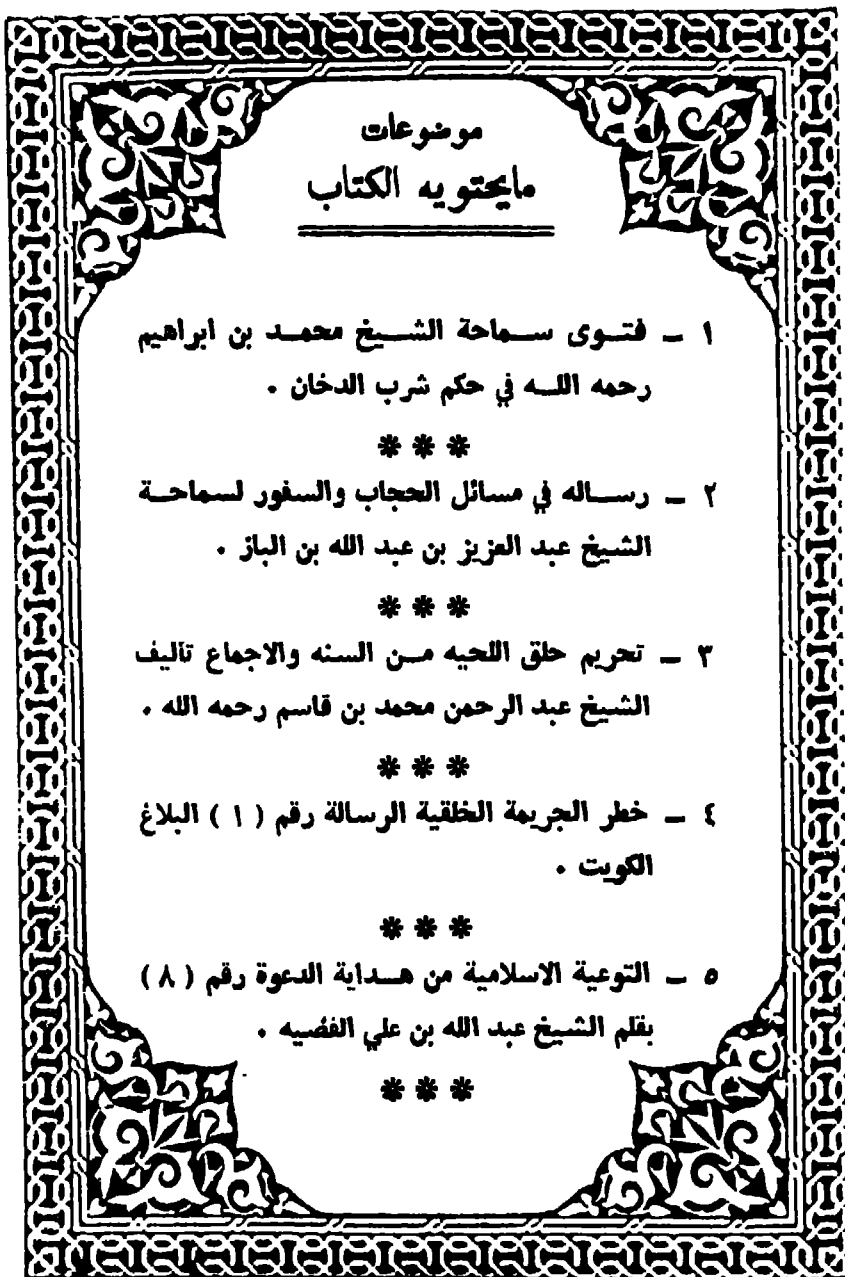 موضوعات
مايحتويه الكتاب
١ ــ فتوى سماحة الشيخ محمد بن ابراهيم
رحمه الله في حكم شرب الدخان .
* * *
٢ ــ رساله في مسائل الحجاب والسفور لسماحة
الشيخ عبد العزيز بن عبد الله بن الباز .
* * *
٣ ــ تحريم حلق اللحيه من السنه والاجماع تأليف
الشيخ عبد الرحمن محمد بن قاسم رحمه الله .
* * *
٤ ــ خطر الجريمة الخلقية الرسالة رقم ( ١ ) البلاغ
الكويت .
* * *
٥ ــ التوعية الاسلامية من هداية الدعوة رقم ( ٨ )
بقلم الشيخ عبد الله بن علي الفضيه .
* * *